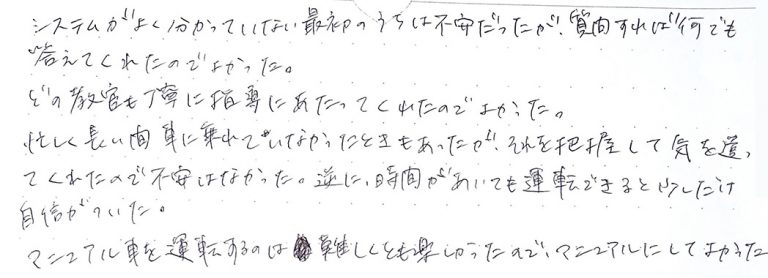 システムがよく分かっていない最初のうちは不安だったが、質問すれば何でも
答えてくれたのでよかった。
どの教官も丁寧に指導にあたってくれたのでよかった。
忙しく長い間車に乗れていなかったときもあったが、それを把握して気を遣っ
てくれたので不安はなかった。逆に、時間があいても運転できると少しだけ
自信がついた。
マニュアル車を運転するのは難しくとも楽しかったので、マニュアルにしてよかった